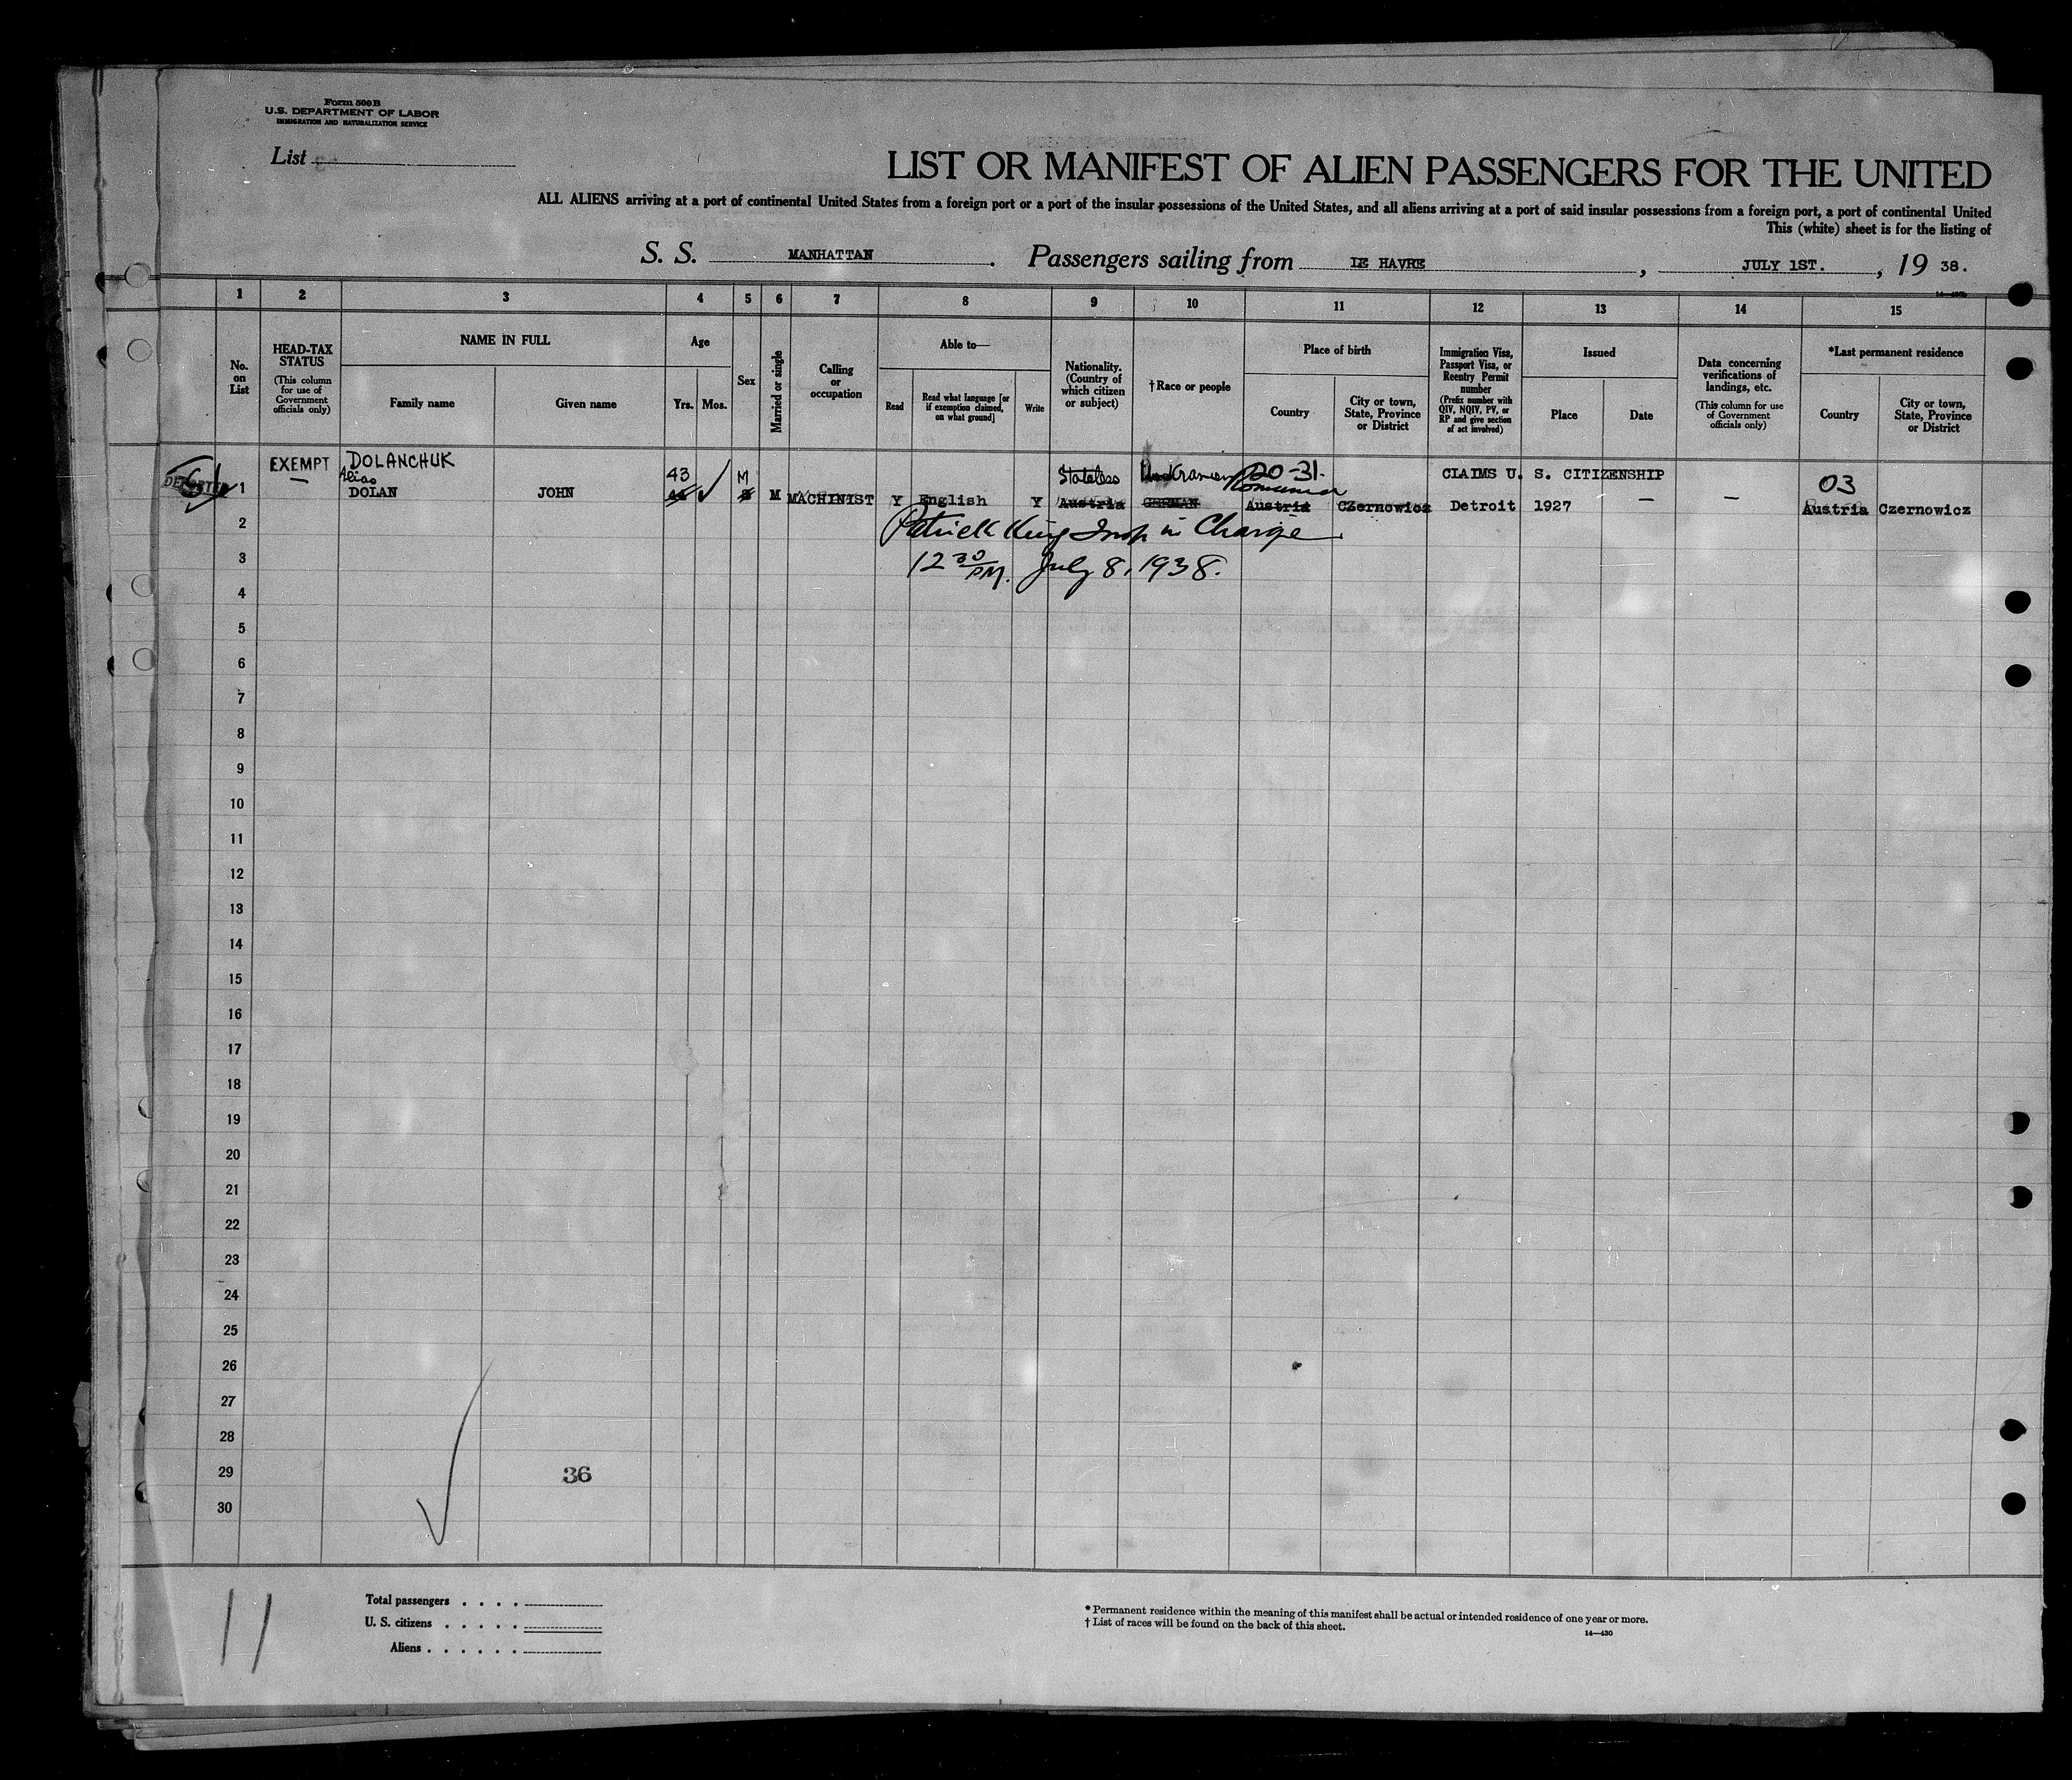 Form 500B
U.S. DEPARTMENT OF LABOR
IMMIGRATION AND NATURALIZATION SERVICE
List
LIST OR MANIFEST OF ALIEN PASSENGERS FOR THE UNITED
ALL ALIENS arriving at a port of continental United States from a foreign port or a port of the insular possessions of the United States, and all aliens arriving at a port of said insular possessions from a foreign port, a port of continental United
This (white) sheet is for the listing of
S. S. MANHATTAN . Passengers sailing from LE HAVRE , JULY 1ST. , 19 38.
1 2 3 4 5 6 7 8 9 10 11 12 13 14 15
No. on List
HEAD-TAX STATUS
(This column for use of Government officials only)
NAME IN FULL
Family name
Given name
Age
Yrs. Mos.
Sex
Married or single
Calling or occupation
Able to—
Read
Read what language [or if exemption claimed, on what ground]
Write
Nationality. (Country of which citizen or subject)
†Race or people
Place of birth
Country
City or town, State, Province or District
Immigration Visa, Passport Visa, or Reentry Permit number
(Prefix number with QIV, NQIV, PV, or RP and give section of act involved)
Issued
Place
Date
Data concerning verifications of landings, etc.
(This column for use of Government officials only)
*Last permanent residence
Country
City or town, State, Province or District
EXEMPT DOLANCHUK 43 M Stateless 20-31. CLAIMS U. S. CITIZENSHIP 03
— Alias Romania
1 DOLAN JOHN M MACHINIST Y English Y Austria GERMAN Austria Czernowicz Detroit 1927 — — Austria Czernowicz
2 Patrick King Insp in Charge
3 12 30 PM. July 8, 1938.
4
5
6
7
8
9
10
11
12
13
14
15
16
17
18
19
20
21
22
23
24
25
26
27
28
29 36
30
11
Total passengers . . . .
U. S. citizens . . . . .
Aliens . . . . . .
* Permanent residence within the meaning of this manifest shall be actual or intended residence of one year or more.
† List of races will be found on the back of this sheet.
14—430